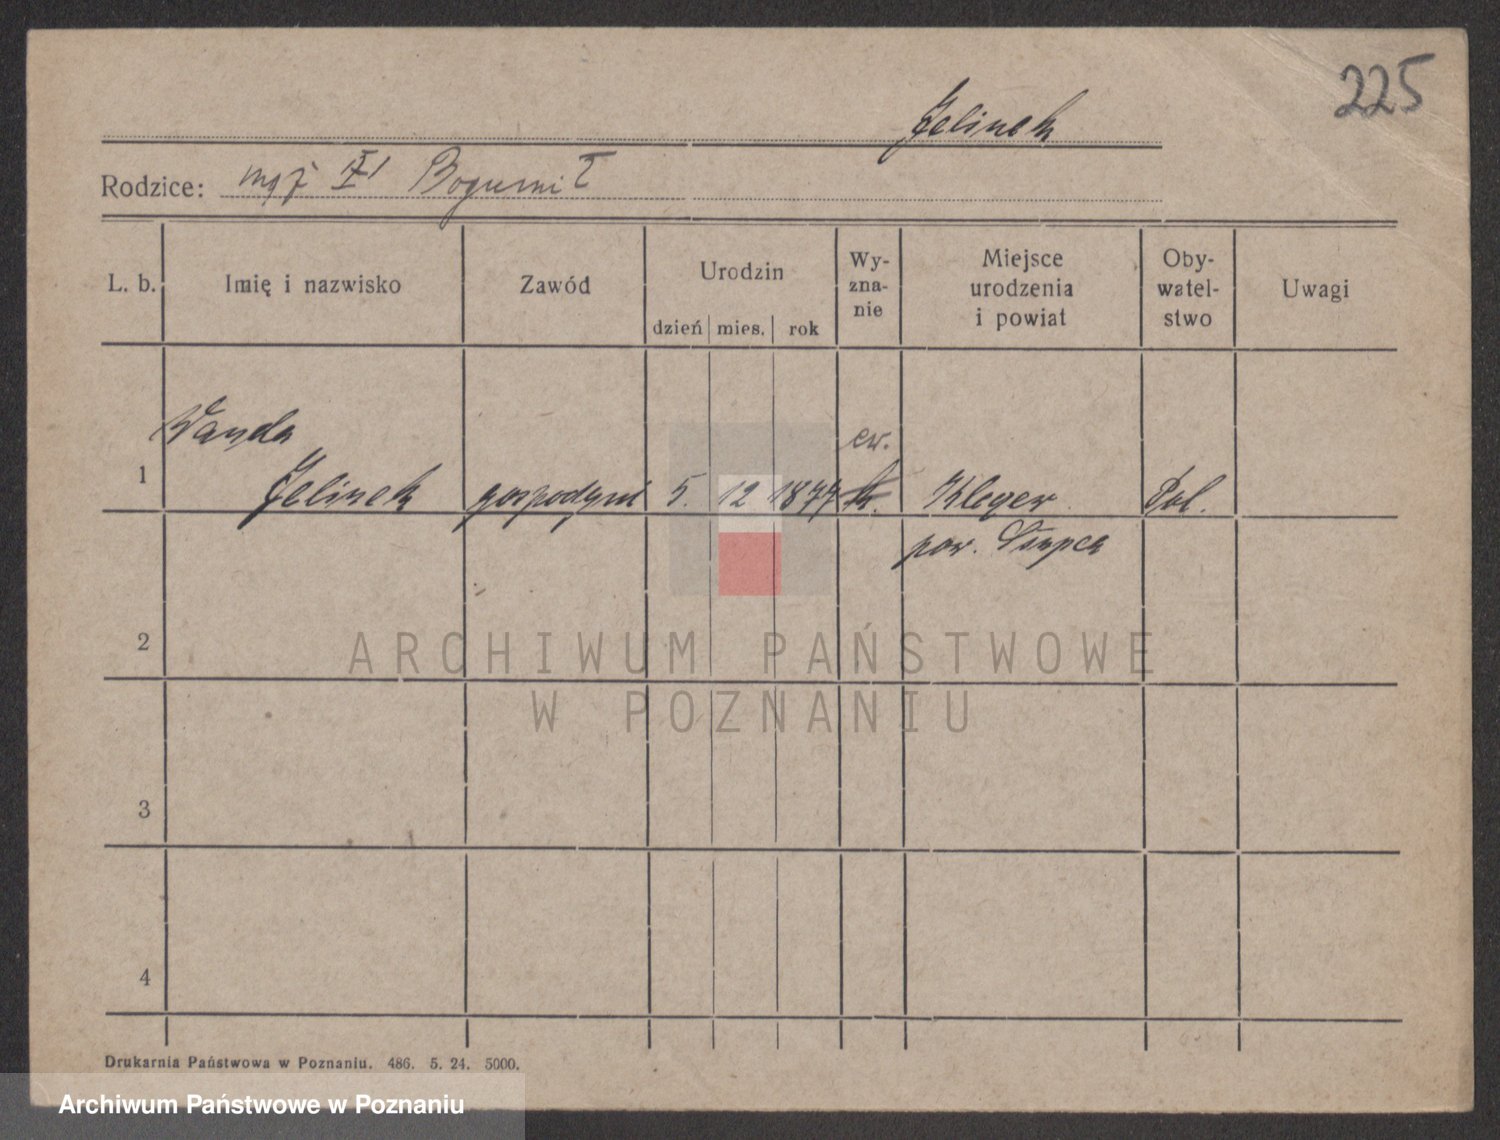 225
Jelinek
Rodzice: mąż Bogumił
L. b. Imię i nazwisko Zawód Urodzin dzień mies. rok Wy-zna-nie Miejsce urodzenia i powiat Oby-watel-stwo Uwagi
Wanda ew.
1 Jelinek gospodyni 5. 12 1877 k. Pol.
pow. Słupca
2
3
4
ARCHIWUM PAŃSTWOWE
W POZNANIU
Drukarnia Państwowa w Poznaniu. 486. 5. 24. 5000.
Archiwum Państwowe w Poznaniu